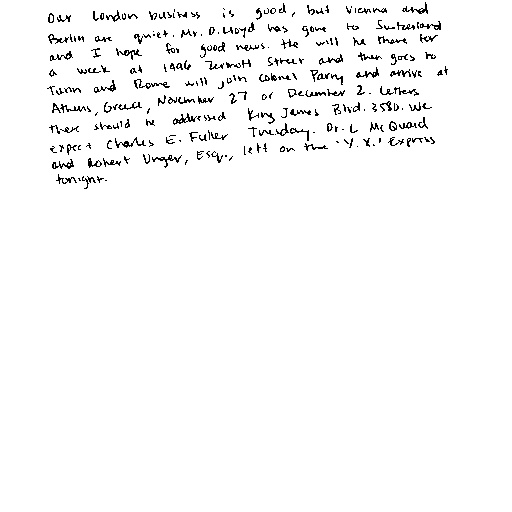 Our London business is good, but Vienna and
Berlin are quiet. Mr. D. Lloyd has gone to Switzerland
and I hope for good news. He will be there for
a week at 1496 Zermott Street and then goes to
Turin and Rome will join Colonel Parry and arrive at
Athens, Greece, November 27 or December 2. Letters
there should be addressed King James Blvd. 3580. We
expect Charles E. Fuller Tuesday. Dr. L McQuaid
and Robert Unger, Esq., left on the 'Y.X.' Express
tonight.